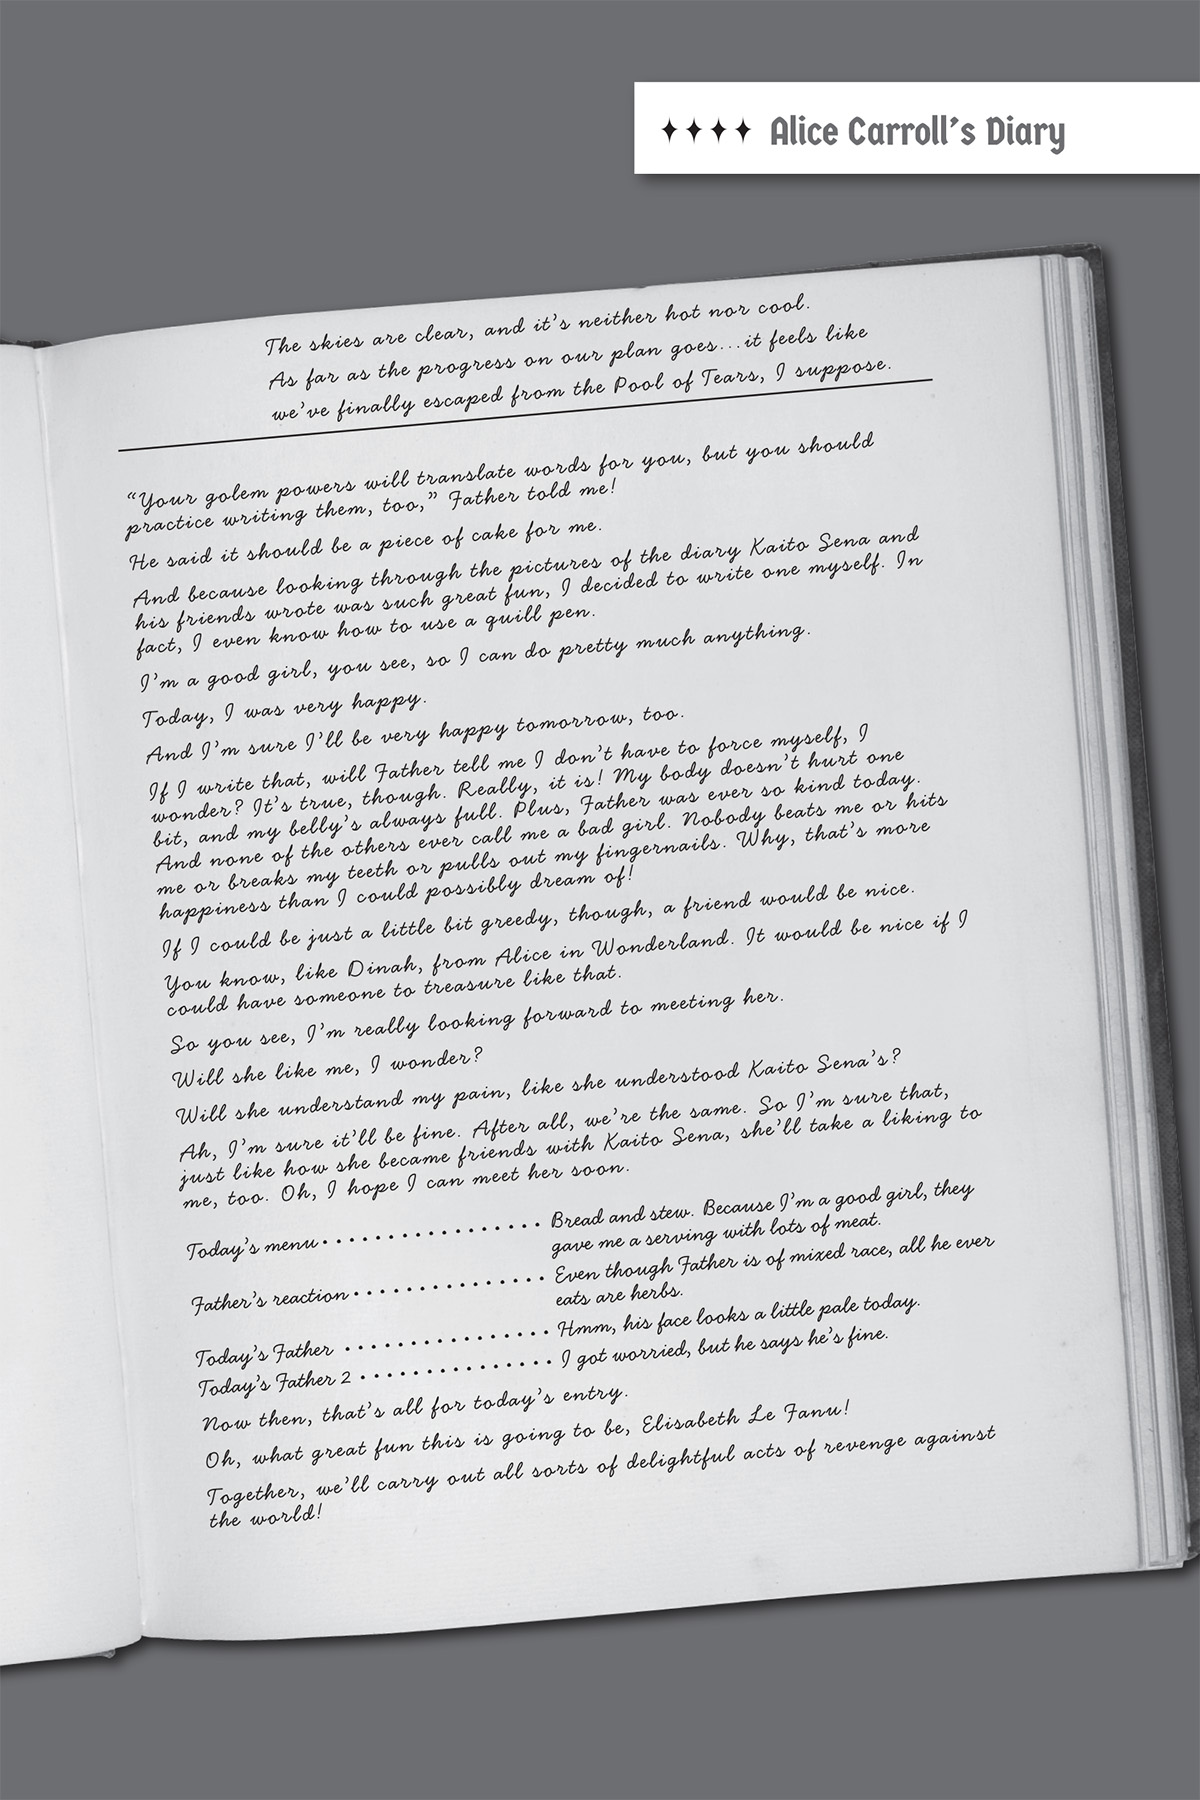 Alice Carroll's Diary
The skies are clear, and it's neither hot nor cool.
As far as the progress on our plan goes...it feels like
we've finally escaped from the Pool of Tears, I suppose.
“Your golem powers will translate words for you, but you should
practice writing them, too,” Father told me!
He said it should be a piece of cake for me.
And because looking through the pictures of the diary Kaito Sena and
his friends wrote was such great fun, I decided to write one myself. In
fact, I even know how to use a quill pen.
I'm a good girl, you see, so I can do pretty much anything.
Today, I was very happy.
And I'm sure I'll be very happy tomorrow, too.
If I write that, will Father tell me I don't have to force myself, I
wonder? It's true, though. Really, it is! My body doesn't hurt one
bit, and my belly's always full. Plus, Father was ever so kind today.
And none of the others ever call me a bad girl. Nobody beats me or hits
me or breaks my teeth or pulls out my fingernails. Why, that's more
happiness than I could possibly dream of!
If I could be just a little bit greedy, though, a friend would be nice.
You know, like Dinah, from Alice in Wonderland. It would be nice if I
could have someone to treasure like that.
So you see, I'm really looking forward to meeting her.
Will she like me, I wonder?
Will she understand my pain, like she understood Kaito Sena's?
Ah, I'm sure it'll be fine. After all, we're the same. So I'm sure that,
just like how she became friends with Kaito Sena, she'll take a liking to
me, too. Oh, I hope I can meet her soon.
Today's menu ................. Bread and stew. Because I'm a good girl, they
gave me a serving with lots of meat.
Father's reaction ............... Even though Father is of mixed race, all he ever
eats are herbs.
Today's Father ................ Hmm, his face looks a little pale today.
Today's Father 2 ............... I got worried, but he says he's fine.
Now then, that's all for today's entry.
Oh, what great fun this is going to be, Elisabeth Le Fanu!
Together, we'll carry out all sorts of delightful acts of revenge against
the world!